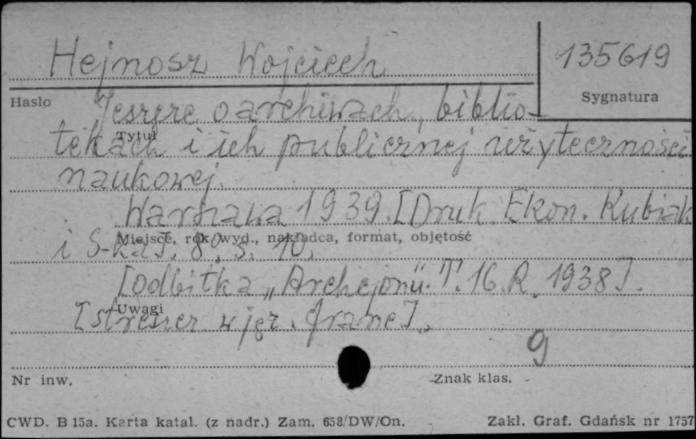 Hejnosz Wojciech
135619
Hasło
Sygnatura
Jeszcze o archiwach, biblio-
Tytuł
tekach i ich publicznej użyteczności
naukowej.
Warszawa 1939. [Druk. Ekon. Kubiak
Miejsce, rok wyd., nakładca, format, objętość
i S-ka]. 8º, s. 10.
[odbitka „Archejonu". T. 16. R. 1938].
Uwagi
[streszcz. w jęz. franc].
9
Nr inw.
Znak klas.
CWD. B 15a. Karta katal. (z nadr.) Zam. 658/DW/On.
Zakł. Graf. Gdańsk nr 1757